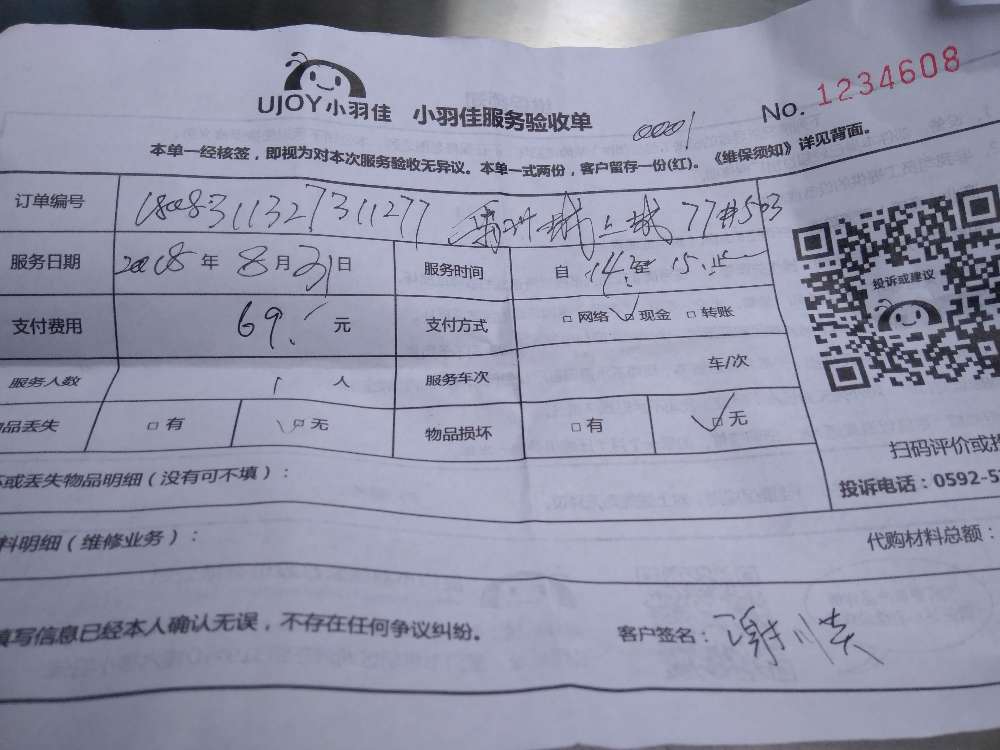 UJOY小羽佳 小羽佳服务验收单 00001 No. 1234608
本单一经核签，即视为对本次服务验收无异议。本单一式两份，客户留存一份(红)。《维保须知》详见背面。
订单编号 77#503
服务日期 2018年8月31日 服务时间 自 14: 至 15:
支付费用 69. 元 支付方式 □ 网络 □ 现金 □ 转账
服务人数 1 人 服务车次 车/次
品丢失 □ 有 □ 无 物品损坏 □ 有 □ 无
投诉或建议
扫码评价或投
坏或丢失物品明细（没有可不填）：
投诉电话：0592-5
料明细（维修业务）： 代购材料总额：
填写信息已经本人确认无误，不存在任何争议纠纷。 客户签名：谢